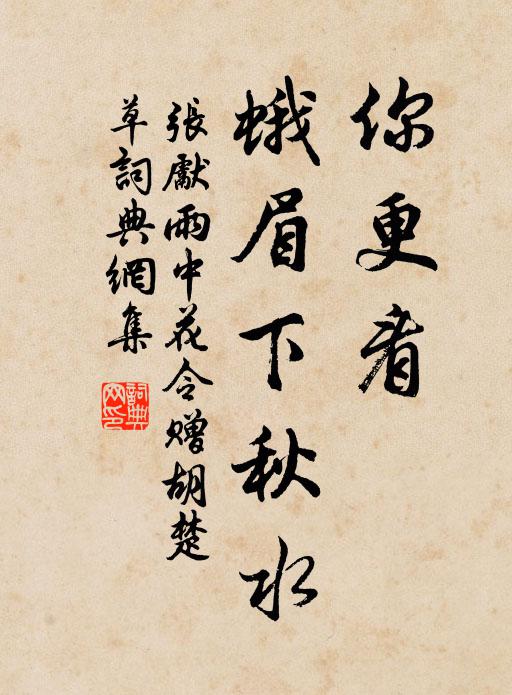 你更看
蛾眉下秋水
張獻雨中花令贈胡楚
草詞典網集
詞典
网印